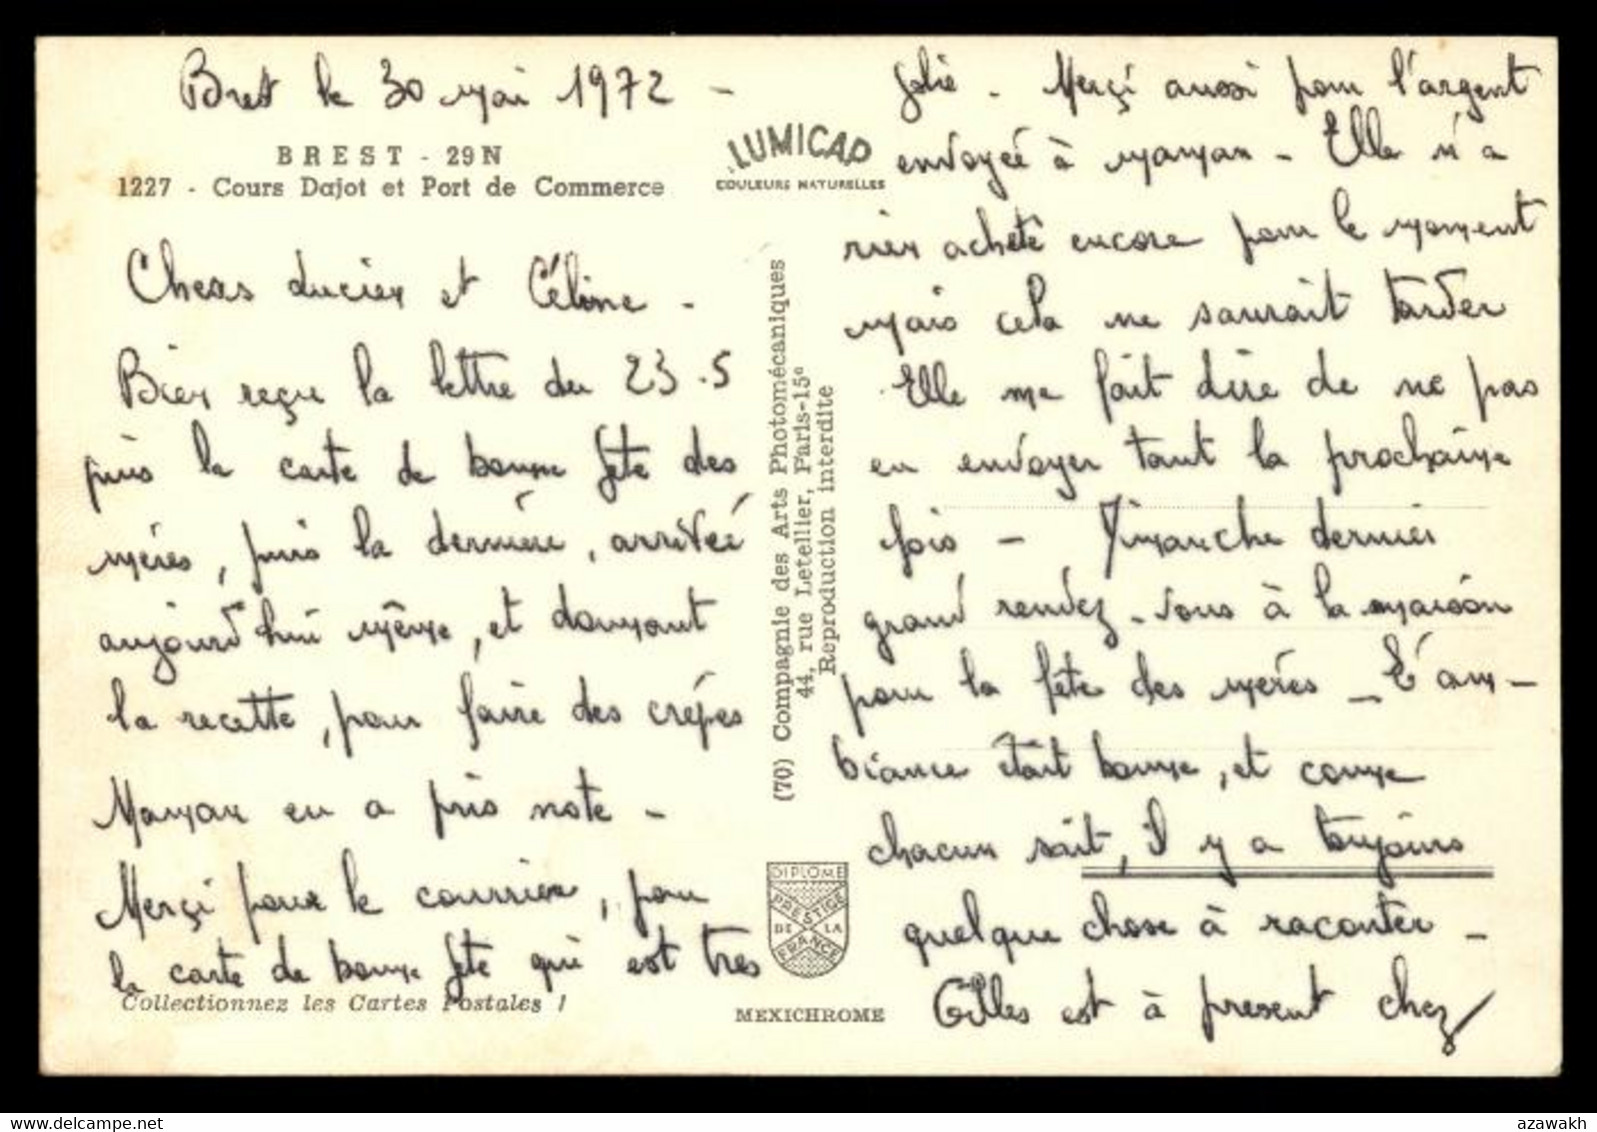 Brest le 30 mai 1972 -
BREST - 29 N
1227 - Cours Dajot et Port de Commerce
Chers Lucien et Céline -
Bien reçu la lettre du 23.5
puis la carte de bonne fête des
mères, puis la dernière, arrivée
aujourd'hui même, et donnant
la recette, pour faire des crépes
Maman en a pris note -
Merçi pour le courrier, pour
la carte de bonne fête qui est très
Collectionnez les Cartes Postales !
LUMICAP
COULEURS NATURELLES
(70) Compagnie des Arts Photomécaniques
44, rue Letellier, Paris-15e
Reproduction interdite
DIPLOME
PRESTIGE
DE LA
FRANCE
MEXICHROME
jolie - Merçi aussi pour l'argent
envoyée à maman - Elle n'a
rien acheté encore pour le moment
mais cela ne saurait tarder
Elle me fait dire de ne pas
en envoyer tant la prochaine
fois - Dimanche dernier
grand rendez-vous à la maison
pour la fête des mères - L'am-
biance était bonne, et comme
chacun sait, il y a toujours
quelque chose à raconter -
Gilles est à présent chez
azawakh